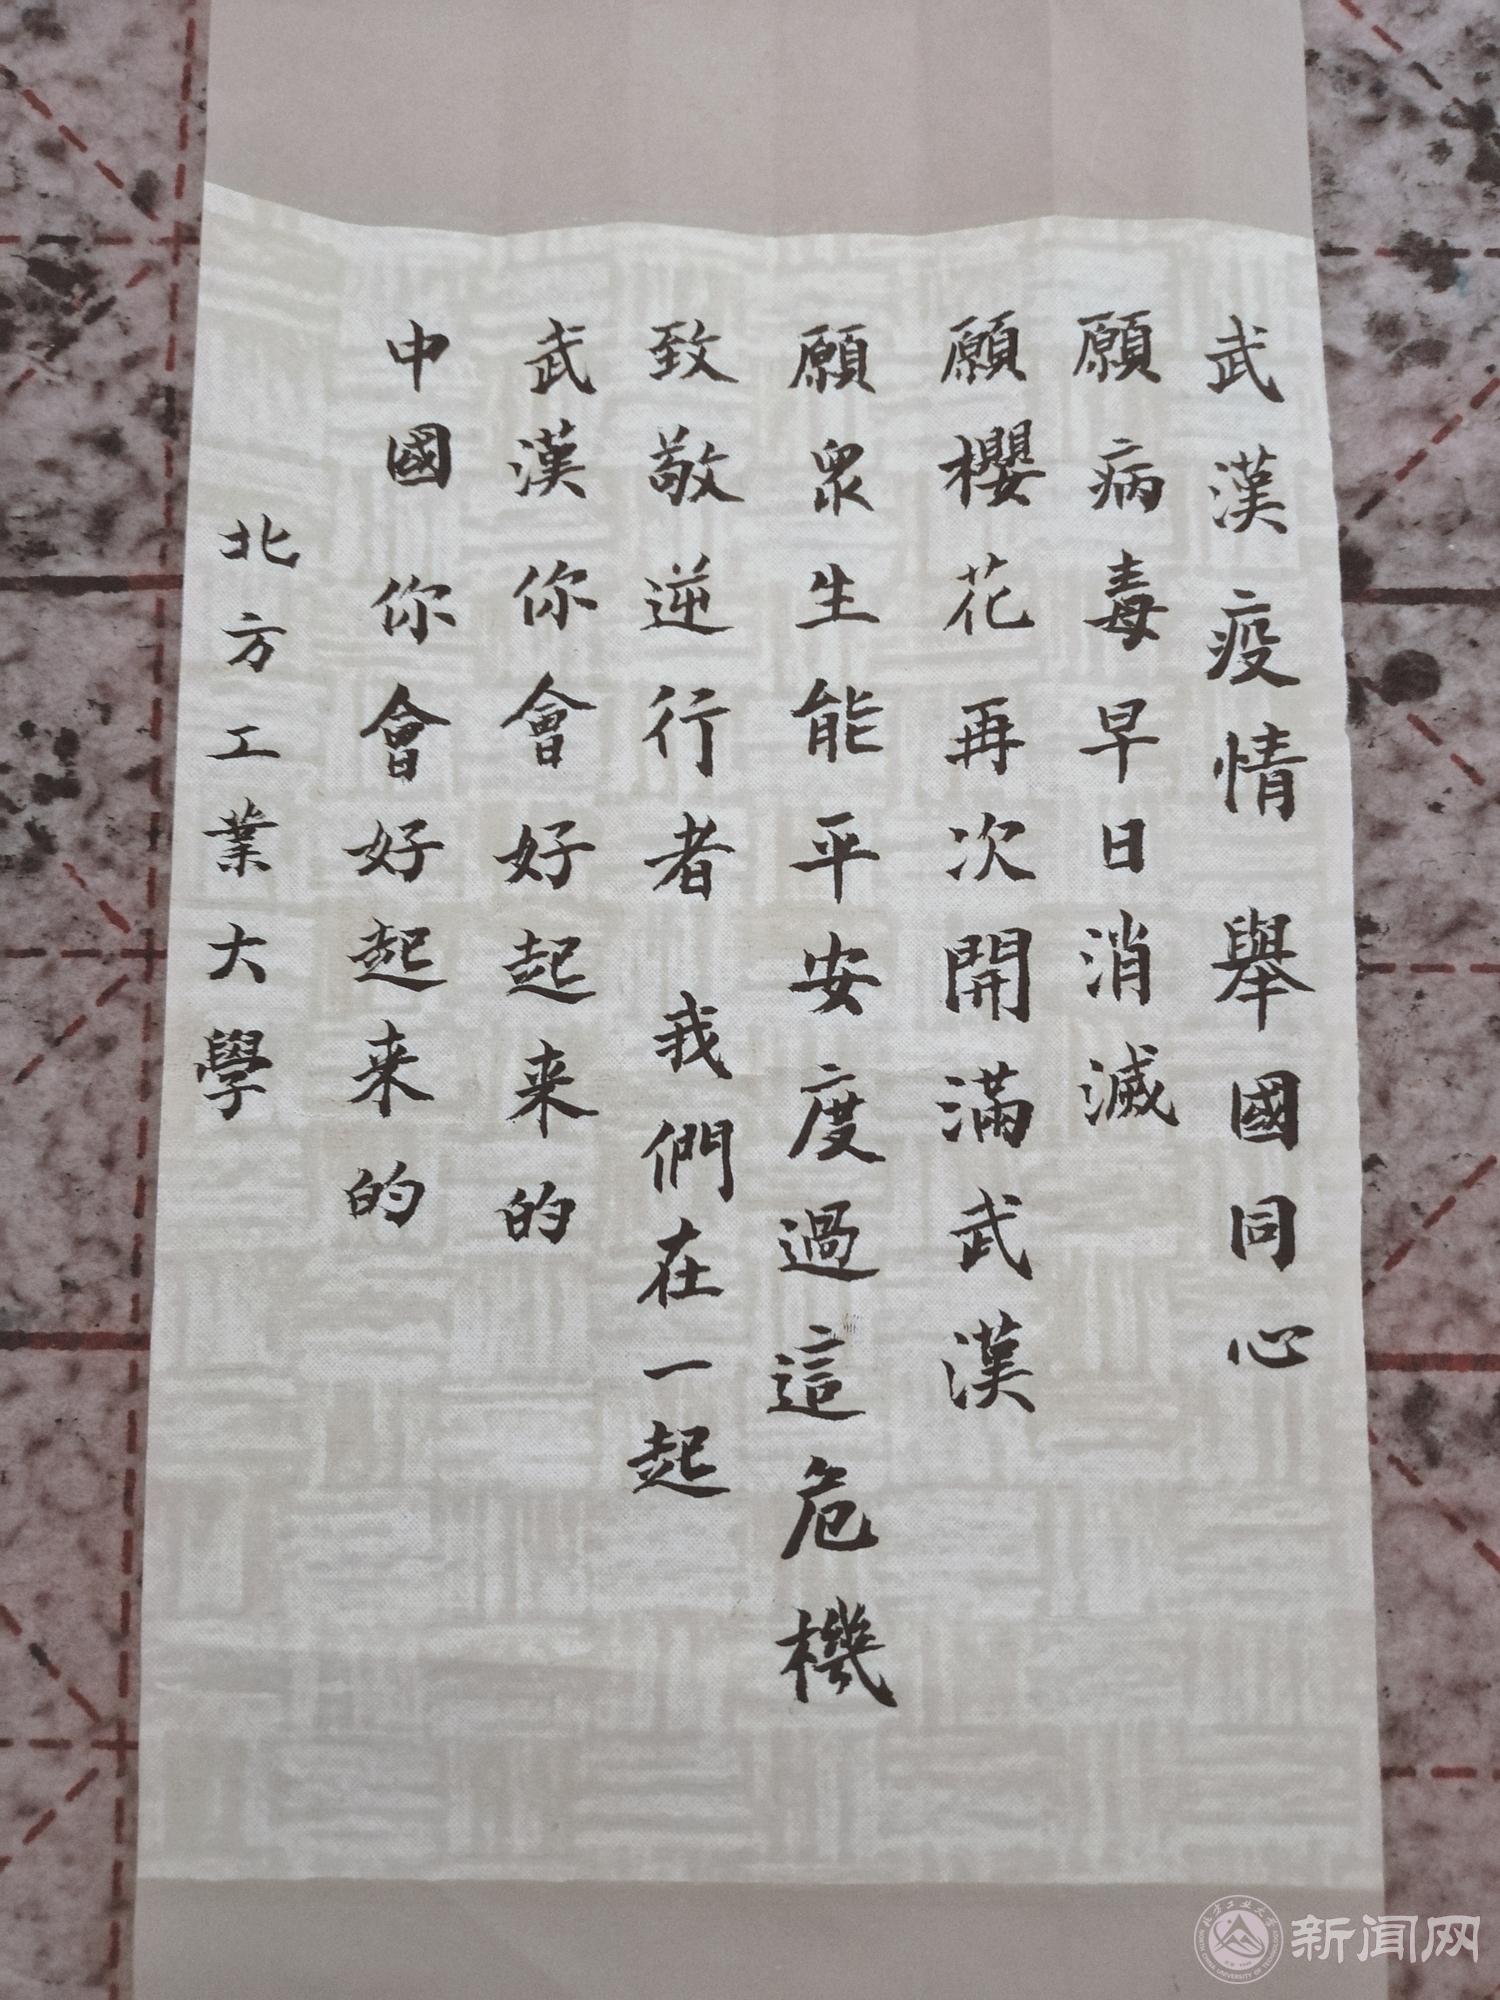 武漢疫情 舉國同心
願病毒早日消滅
願櫻花再次開滿武漢
願眾生能平安度過這危機
致敬逆行者 我們在一起
武漢你會好起来的
中國你會好起来的
北方工業大學
新闻网